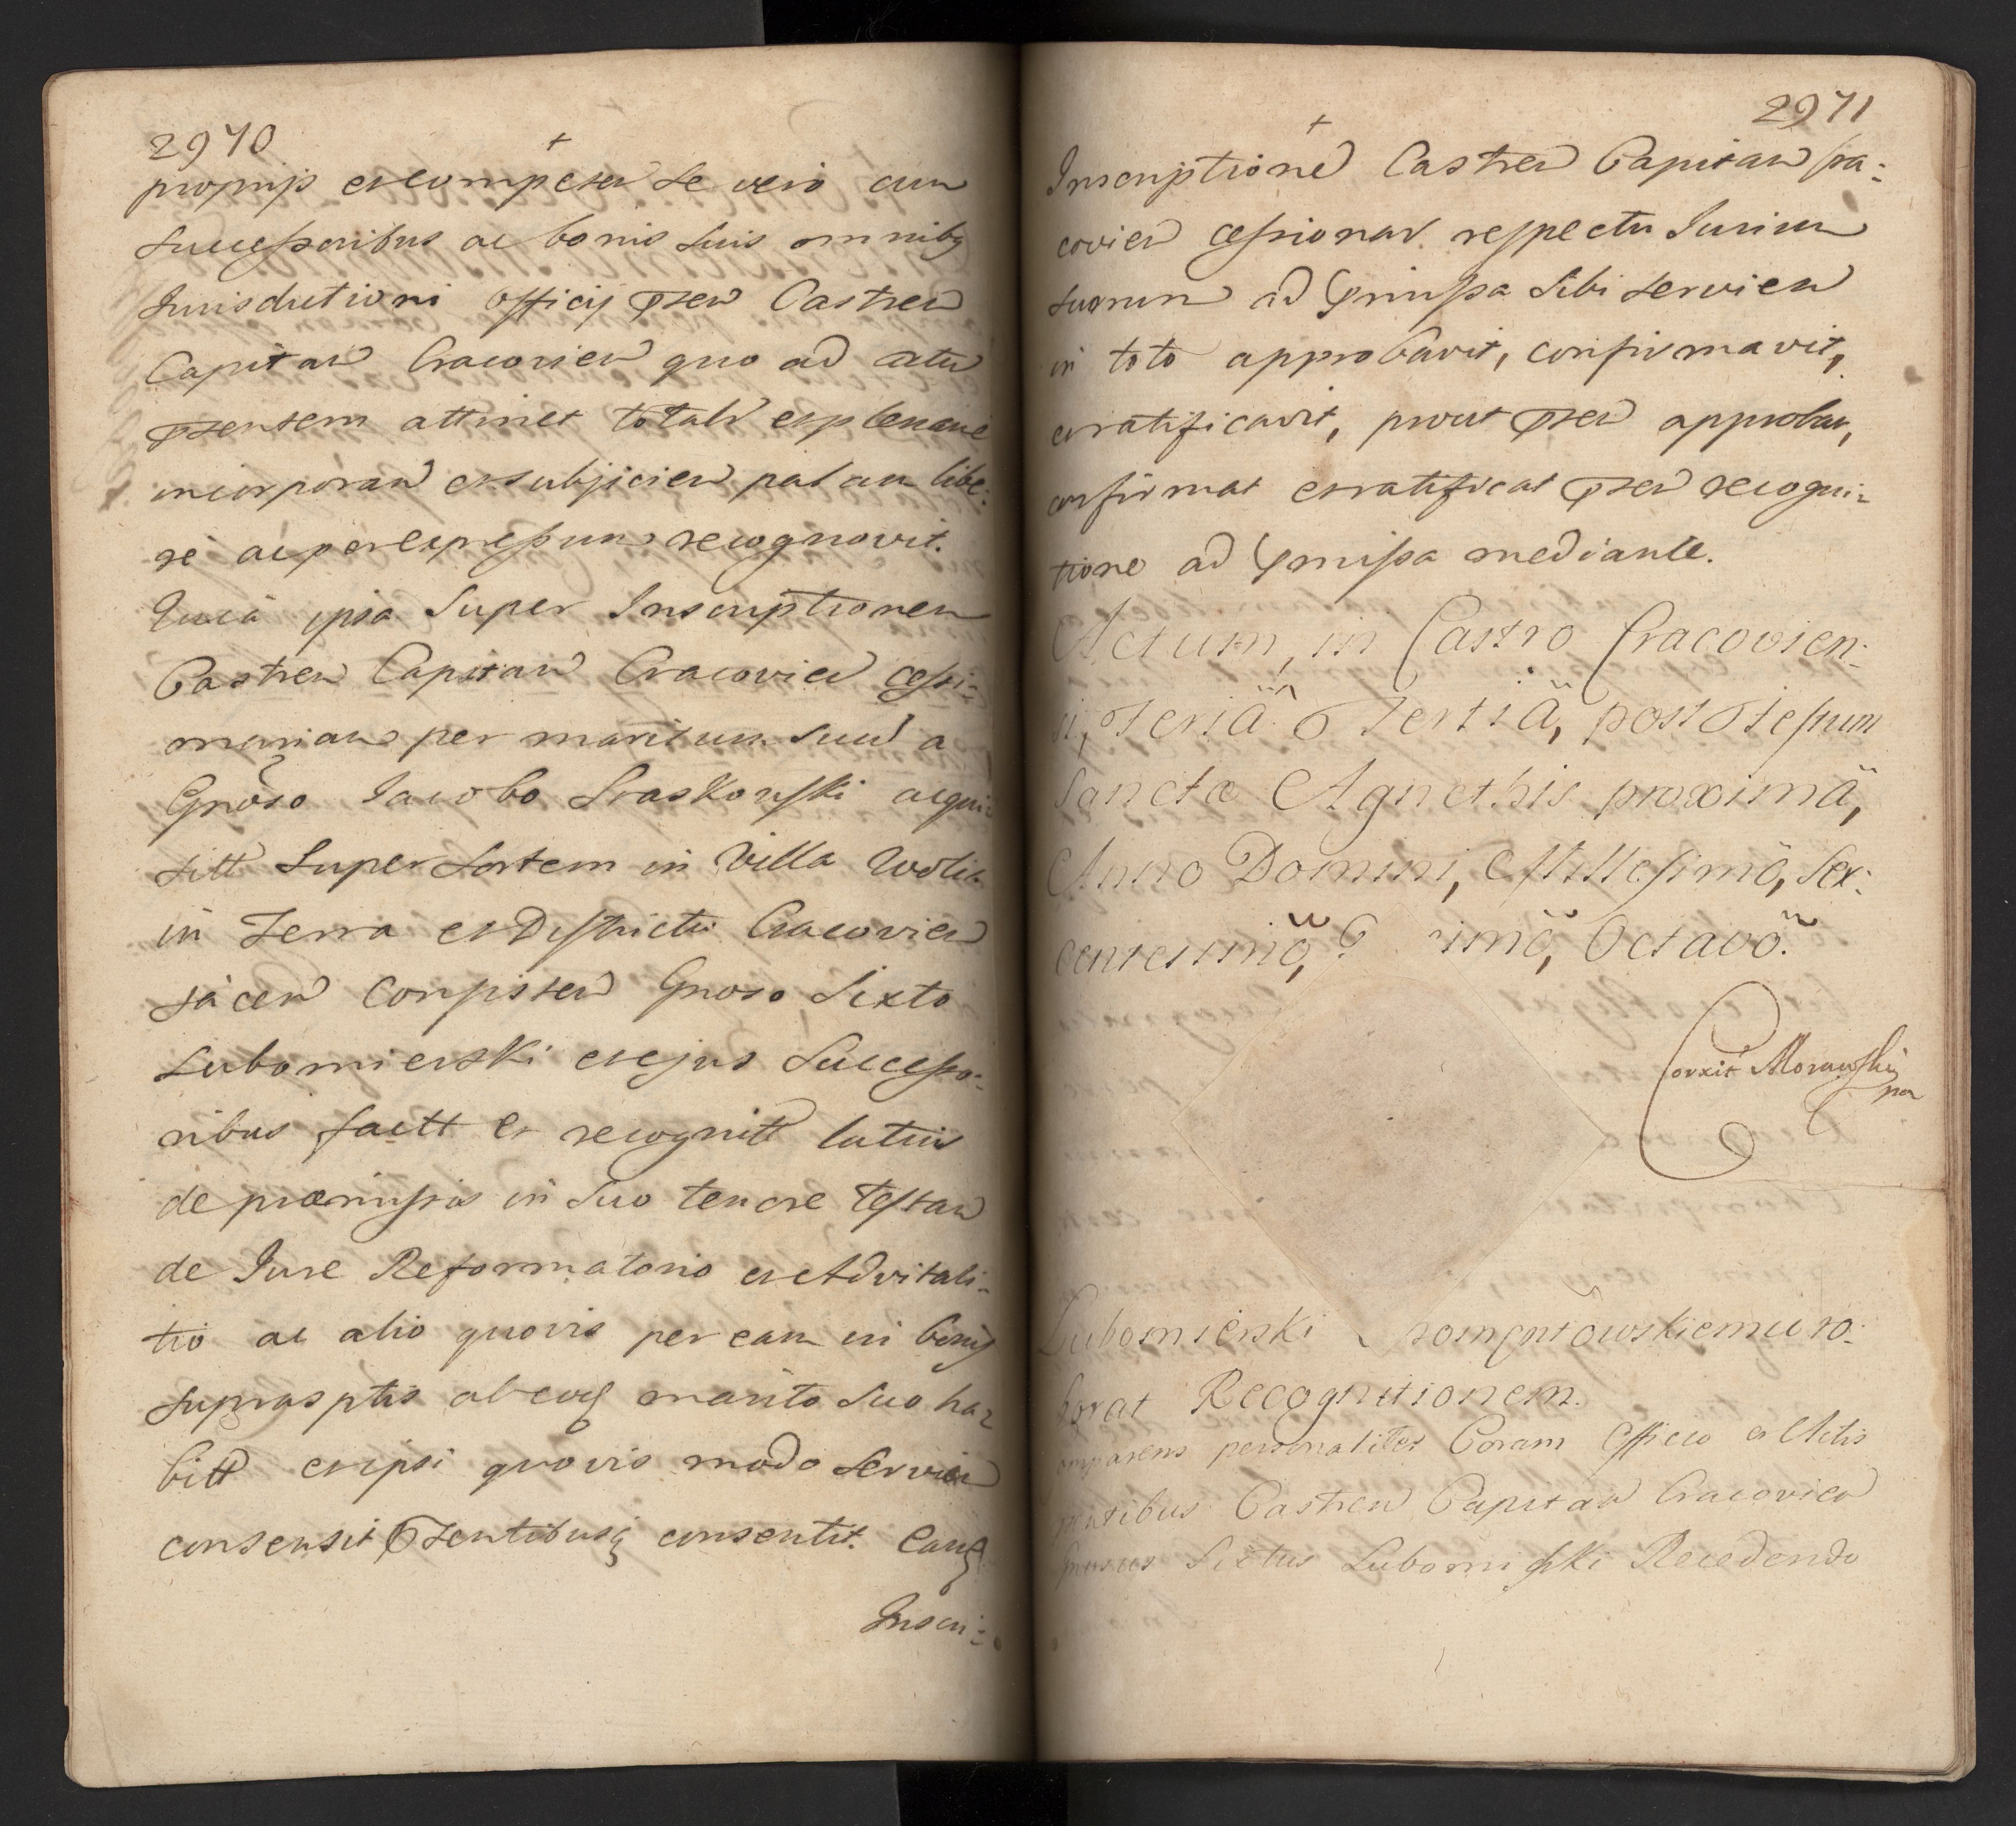 2970
+
proprijs et competen se vero cum
successoribus ac bonis suis omnibq
Jurisdictioni officij psen Castren
Capitan Cracovien quo ad actu
psentem attinet totalr et plenarie
incorporan et subjicien palam libe:
re ac per expressum recognovit.
Quia ipsa super Inscriptionem
Castren Capitan Cracovien cessi-
onarian per maritum suu a
Gnoso Jacobo Kraskowski acqui
sitt super sortem in Villa Wolia
in Terra et Districtu Cracovien
jacen consisten Gnoso Sixto
Lubomierski et ejus Successo:
ribus factt et recognitt latius
de praemissis in suo tenore testan
de Jure Reformatorio et Advitali-
tio ac alio quovis per eam in bonis
suprasptis ab eoq marito suo ha-
bitt et ipsi quovis modo servien
consensit psentibusq consentit. Eanq
Inscri:
2971
+
Inscriptione Castren Capitan Cra:
covien cessionar. respectu Jurium
suorum ad pmissa sibi servien
in toto approbavit, confirmavit,
et ratificavit, prout psen approbat,
confirmat et ratificat psen recogni-
tione ad pmissa mediante.
Actum, in Castro Cracovien:
si, Feriâ Tertiâ, post Festum
Sanctae Agnethis proximâ,
Anno Domini, Millesimô, Sex:
centesimô, imô, Octavô.
Corxit Morawski
mp
Lubomierski ro:
borat Recognitionem.
Comparens personaliter Coram Officio et Actis
psentibus Castren Capitan Cracovien
Gnosus Sixtus Lubomirski Recedendo